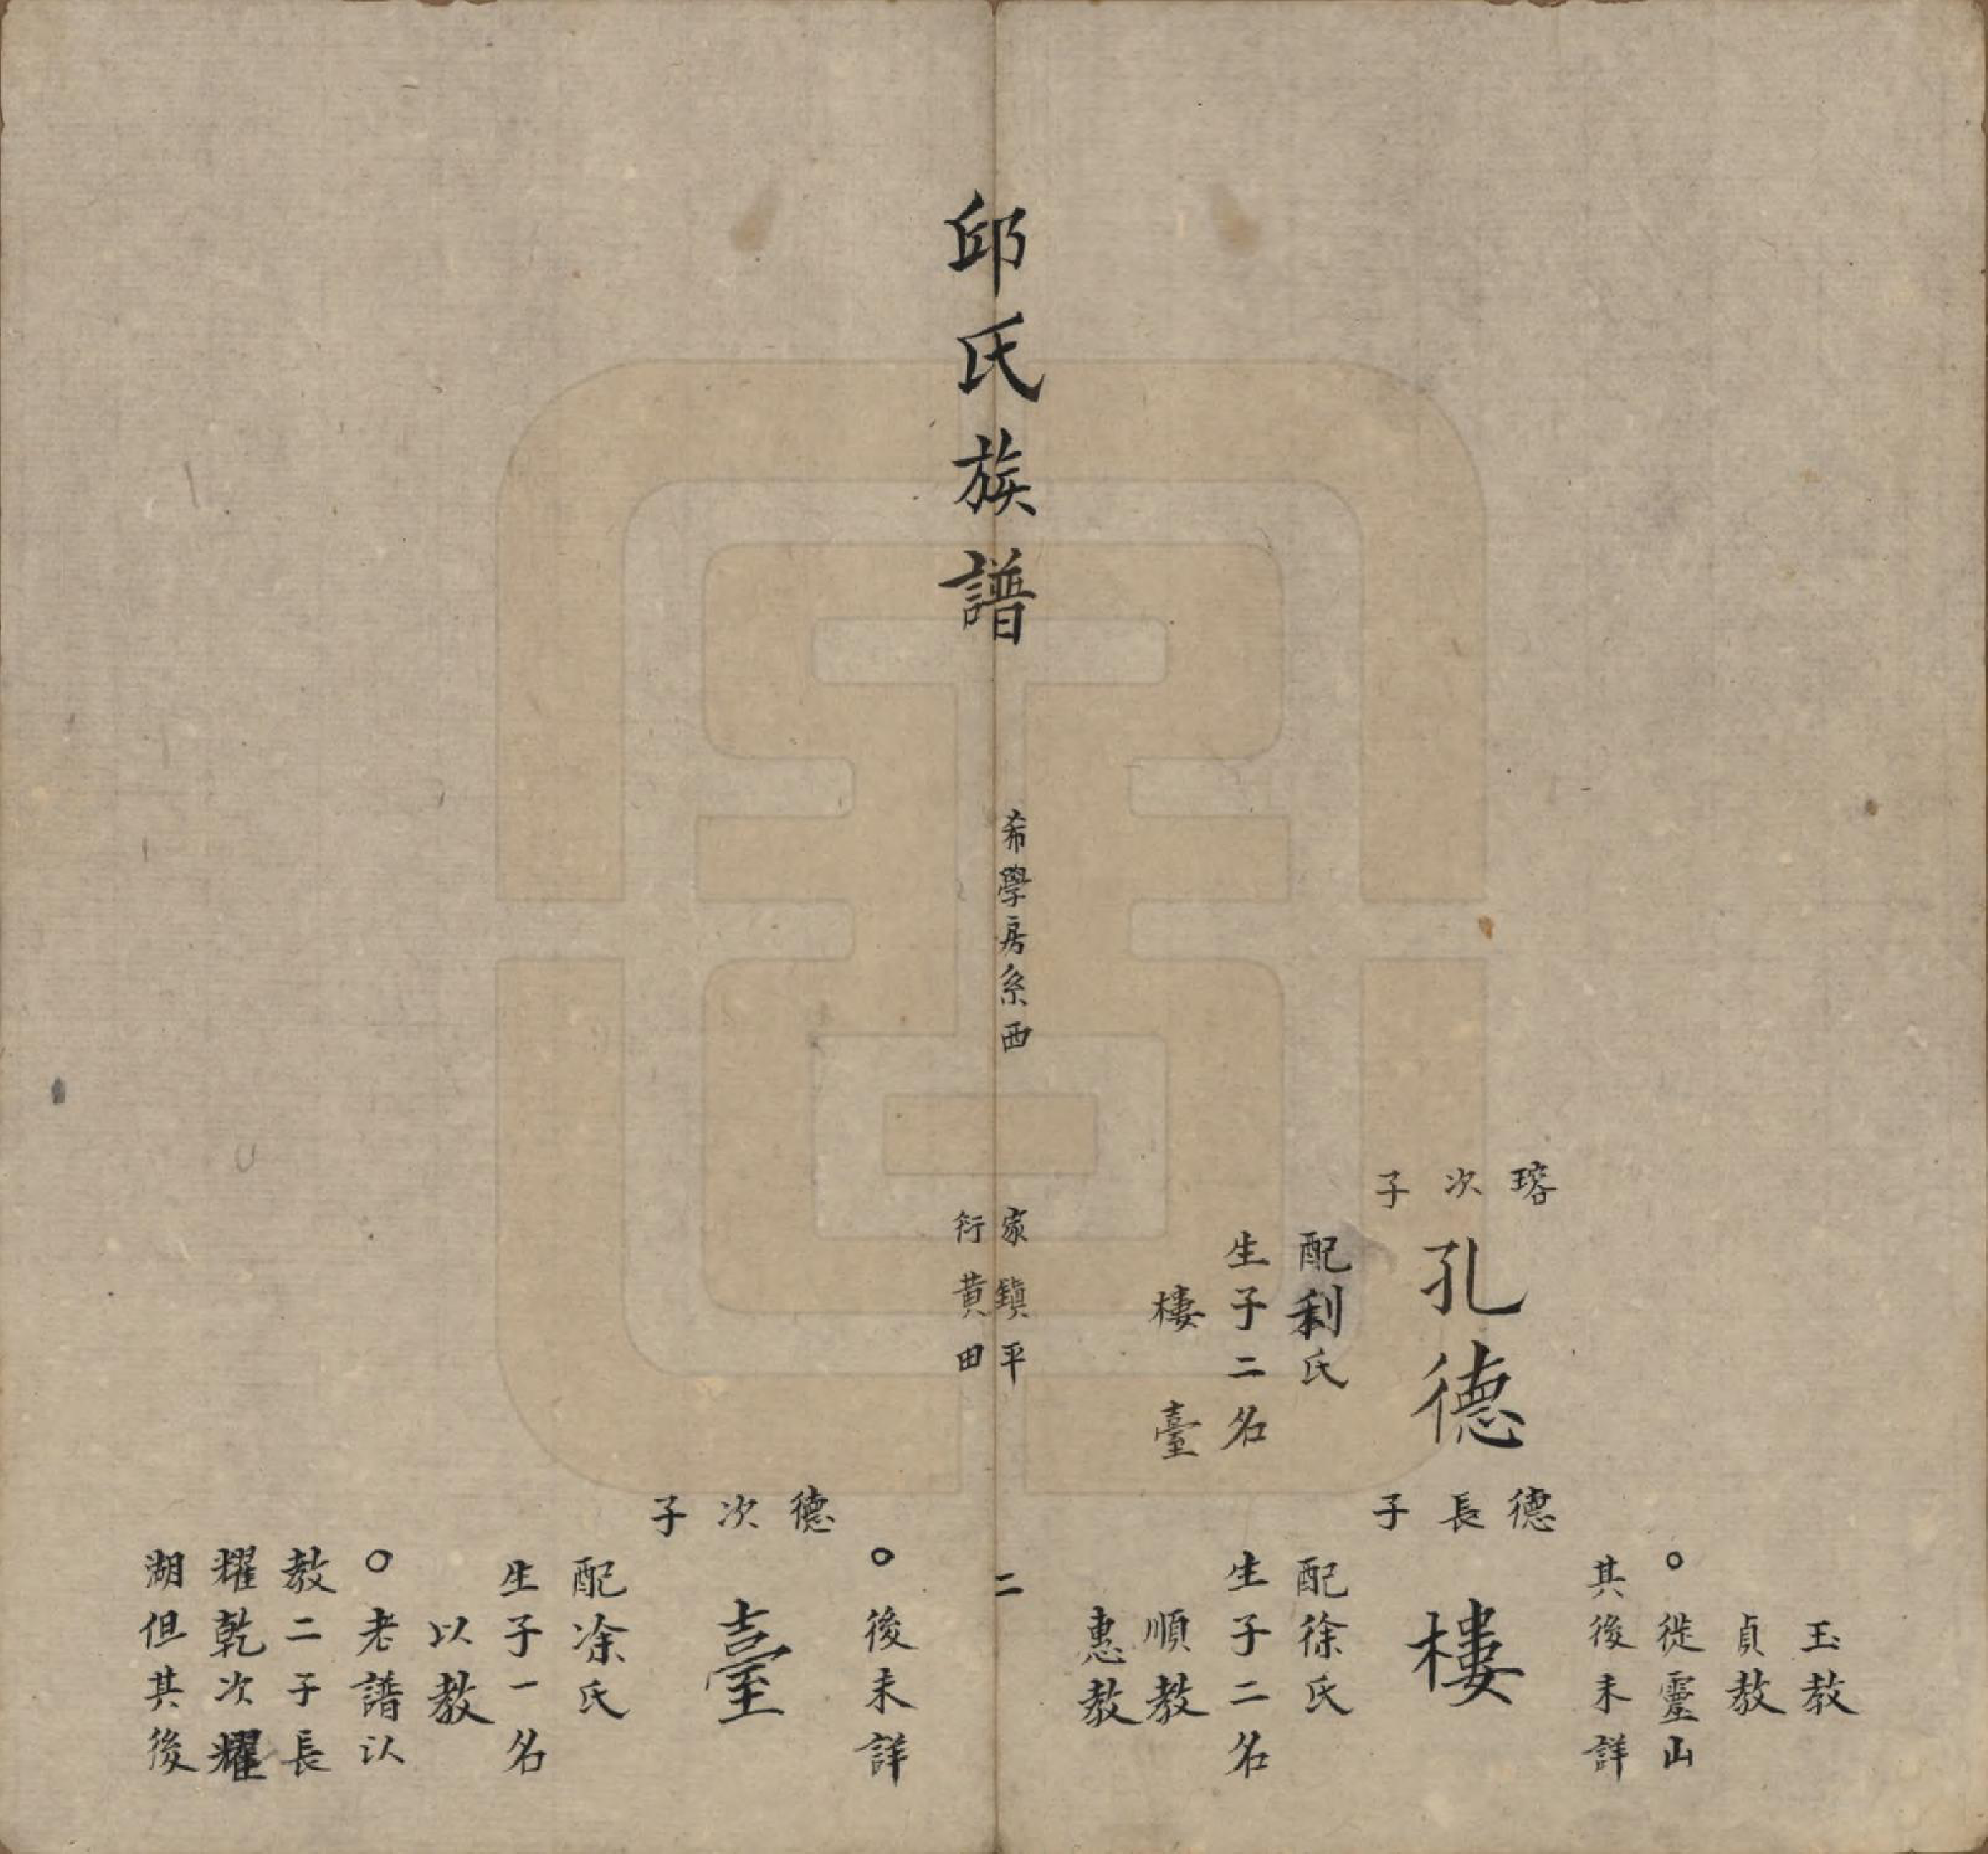 玉教
貞教
○徙靈山
其後未詳
瑢次子
孔德
配利氏
生子二名
樓 臺
德長子
樓
配徐氏
生子二名
順教
惠教
邱氏族譜
希學房系西
家鎮平
衍黄田
二
○後未詳
德次子
臺
配凃氏
生子一名
以教
○老譜以
教二子長
耀乾次耀
湖但其後